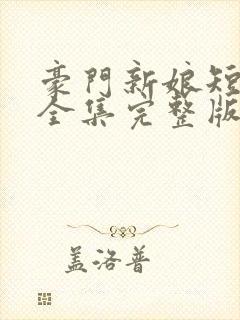 豪門新娘短
全集完整版
盖洛普